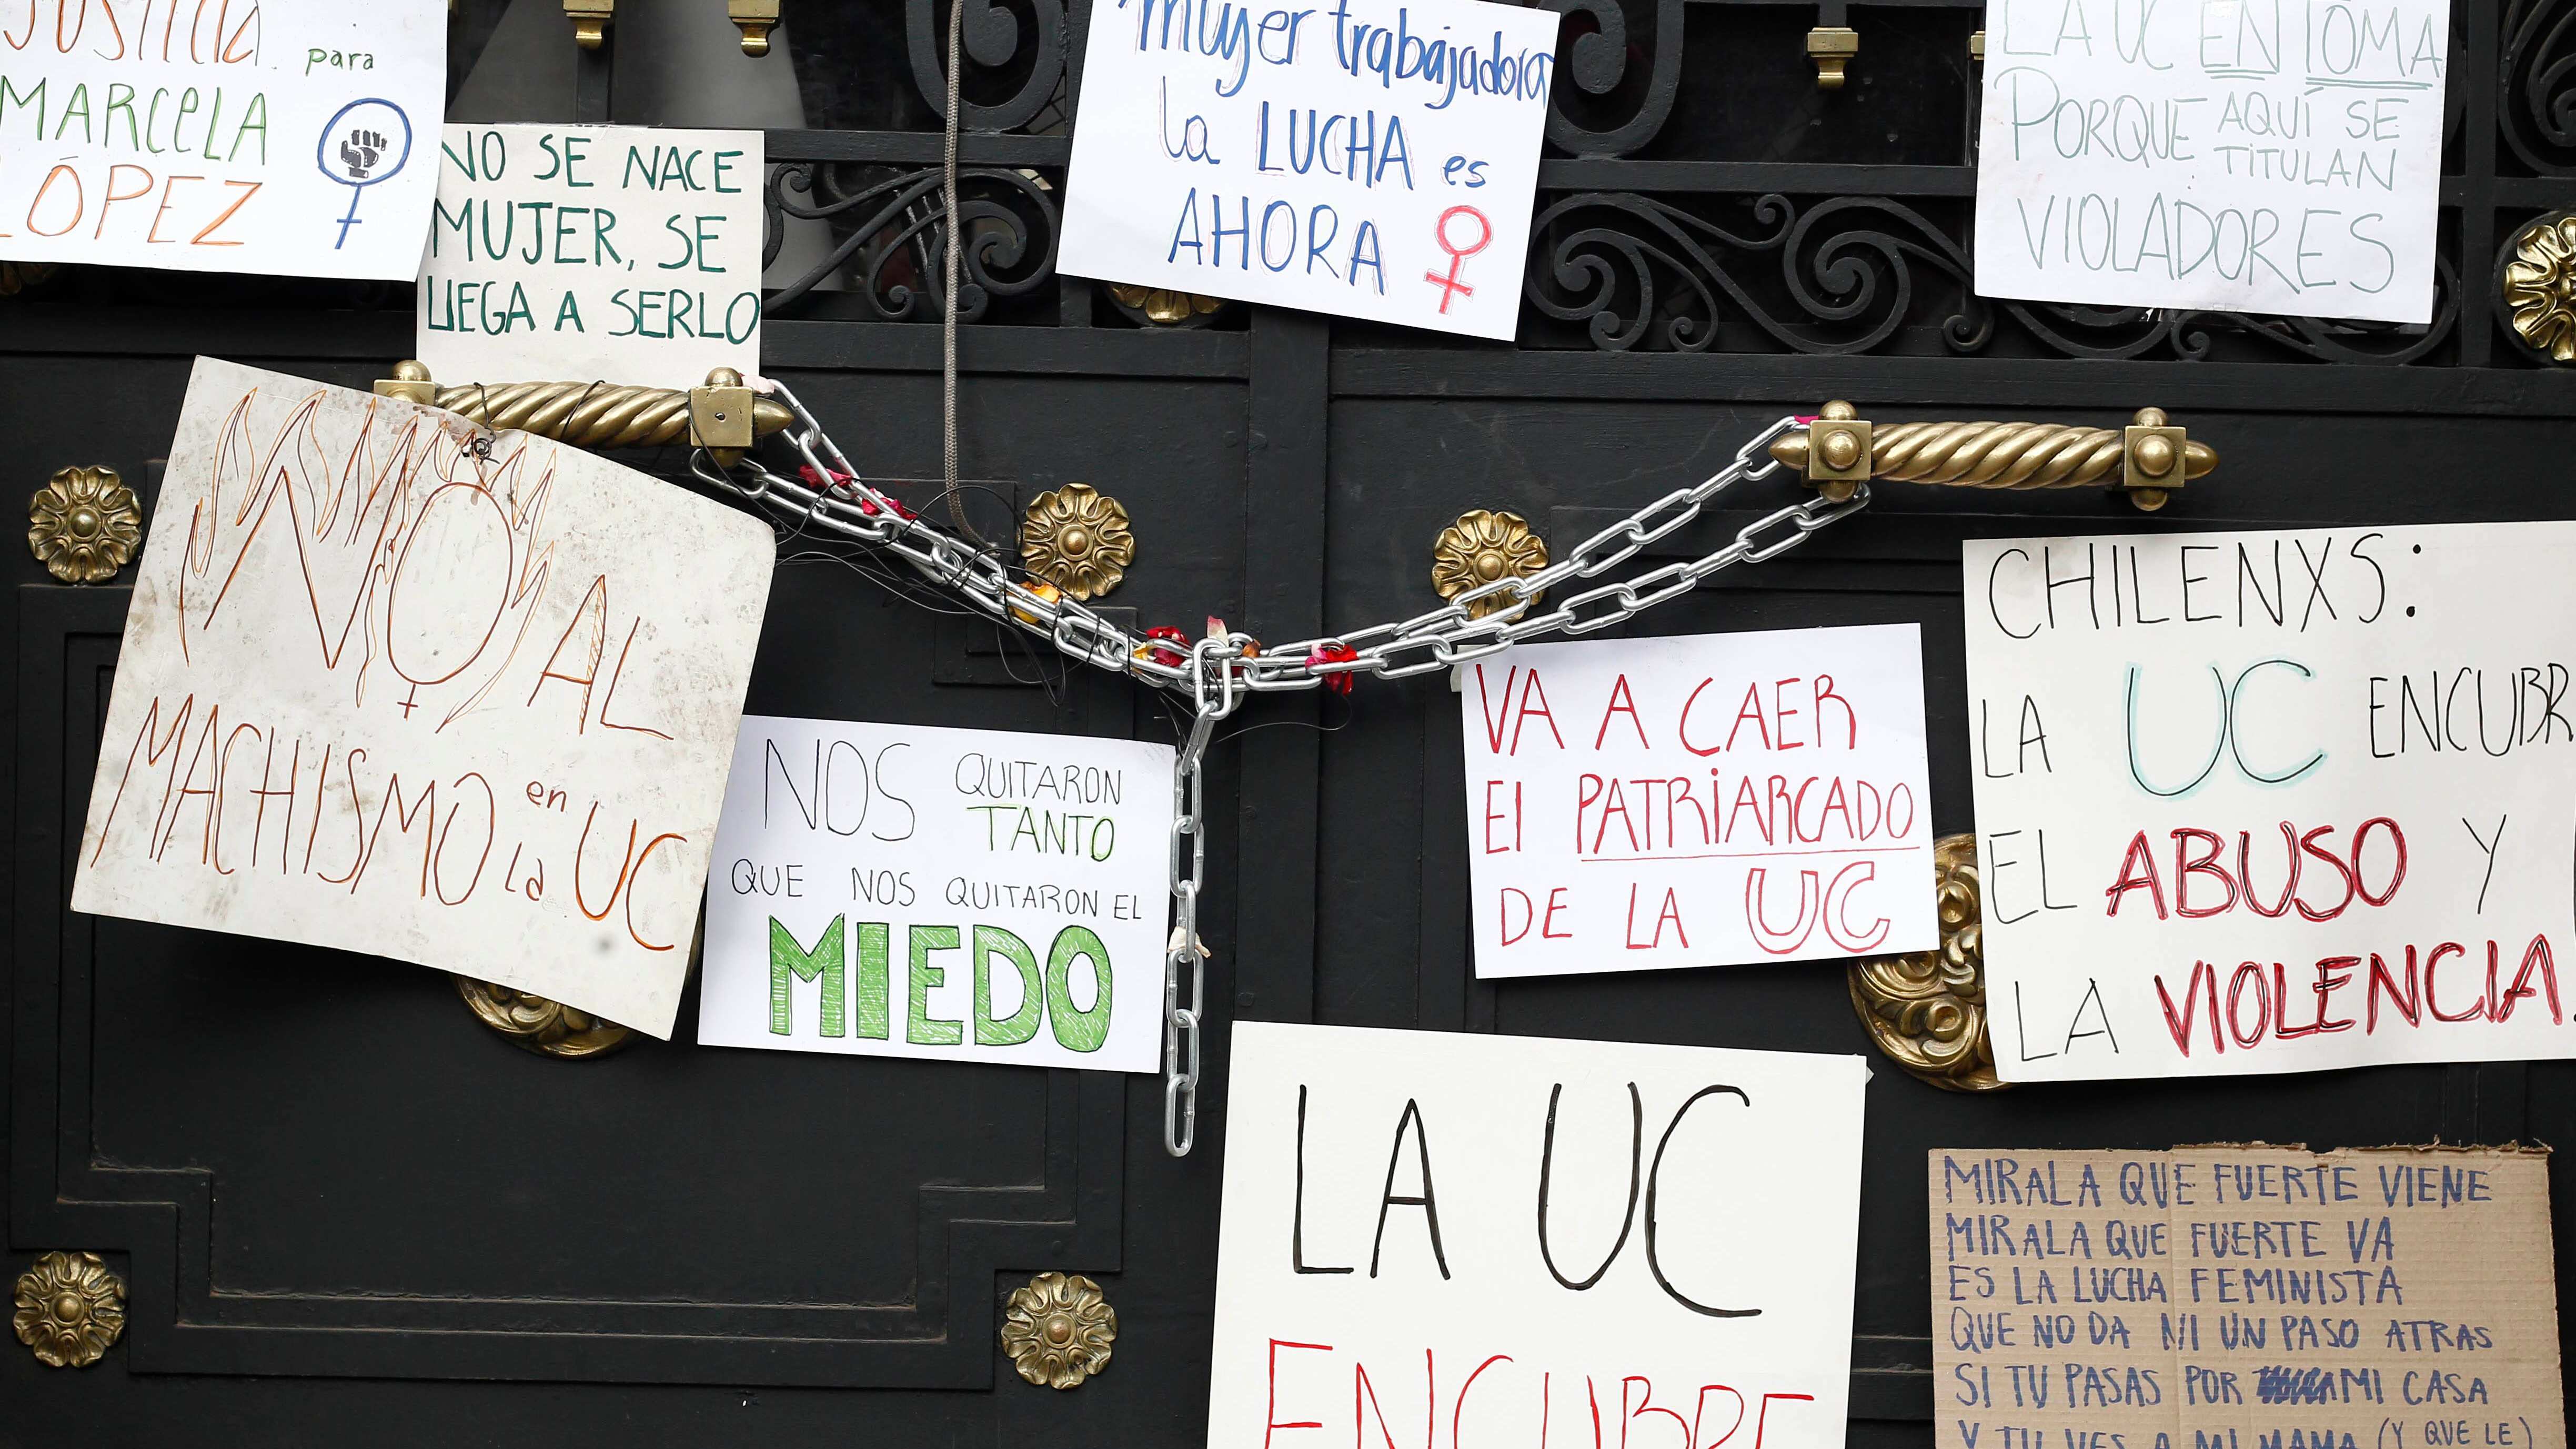 JUSTICIA para
MARCELA
LÓPEZ
NO SE NACE
MUJER, SE
LLEGA A SERLO
Mujer trabajadora
la LUCHA es
AHORA
LA UC EN TOMA
PORQUE AQUÍ SE
TITULAN
VIOLADORES
NO AL
MACHISMO en
la UC
NOS QUITARON
TANTO
QUE NOS QUITARON EL
MIEDO
VA A CAER
El PATRiARCADO
DE LA UC
CHILENXS:
LA UC ENCUBR
EL ABUSO Y
LA VIOLENCIA.
LA UC
ENCUBRE
MIRALA QUE FUERTE VIENE
MIRALA QUE FUERTE VA
ES LA LUCHA FEMINISTA
QUE NO DA NI UN PASO ATRAS
SI TU PASAS POR MI CASA
Y TU VES A MI MAMA (Y QUE LE)